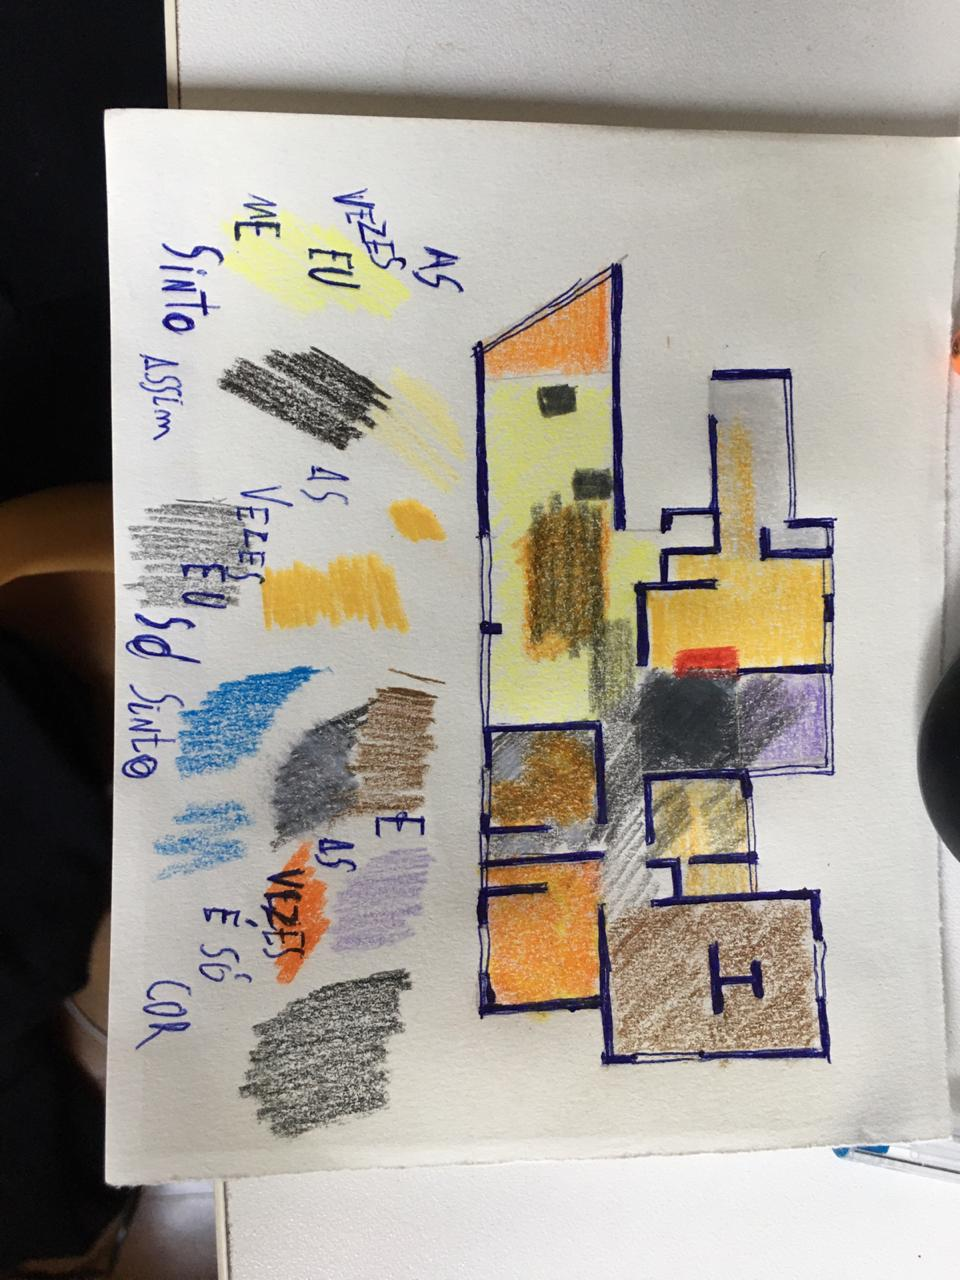 AS
VEZES
EU
ME
SiNTO
ASSim
AS
VEZES
EU Só SiNTO
E
AS
VEZES
É SÓ
COR